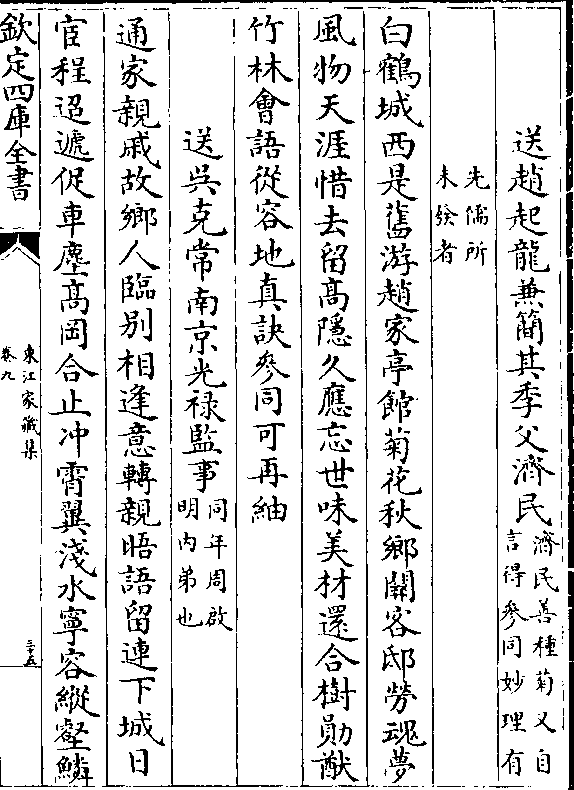 送趙起龍兼簡其季父濟民濟民善種菊又自
言得參同妙理有
先儒所
未發者
白鶴城西是舊游趙家亭館菊花秋鄉關客邸勞魂夢
風物天涯惜去留髙隱久應忘世味美材還合樹勛猷
竹林㑹語從容地真訣參同可再紬
送吳克常南京光禄監事同年周啟
明内弟也
通家親戚故鄉人臨别相逢意轉親晤語留連下城日
宦程迢遞促車塵髙岡合止冲霄翼淺水寧容縱壑鱗
欽定四庫全書
東江家藏集
卷九
三十五